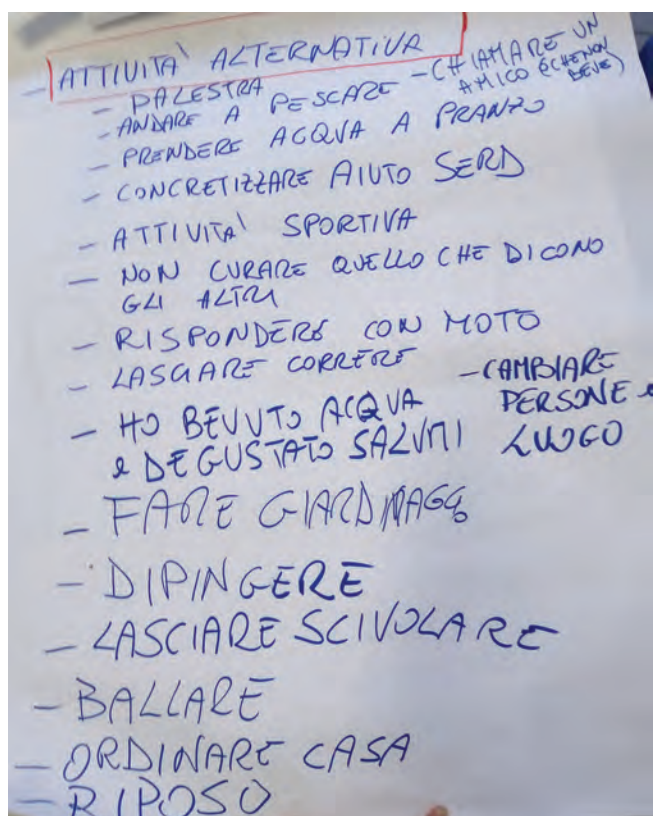 - ATTIVITA' ALTERNATIVA
- PALESTRA
- ANDARE A PESCARE
- CHIAMARE UN
AMICO (CHE NON
BEVE)
- PRENDERE ACQUA A PRANZO
- CONCRETIZZARE AIUTO SERD
- ATTIVITA' SPORTIVA
- NON CURARE QUELLO CHE DICONO
GLI ALTRI
- RISPONDERE CON MOTO
- LASCIARE CORRERE
- HO BEVUTO ACQUA
e DEGUSTATO SALUMI
- CAMBIARE
PERSONE e
LUOGO
- FARE GIARDINAGG
- DIPINGERE
- LASCIARE SCIVOLARE
- BALLARE
- ORDINARE CASA
- RIPOSO